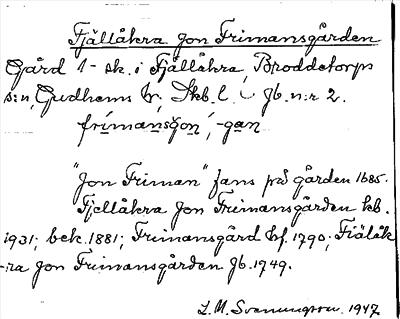 Fjällåkra Jon Frimansgården
Gård 1- sk. i Fjällåkra, Broddetorps
s:n, Gudhems hr, Skb. l. Jb. n:r 2.
frimansgon, -gan
"Jon Friman" fans på gården 1685.
Fjellåkra Jon Frimansgården kb.
1931; bek. 1881; Frimansgård hf. 1790; Fiälåk-
-ra Jon Frimansgården Jb. 1749.
L. M. Svenungsson. 1947